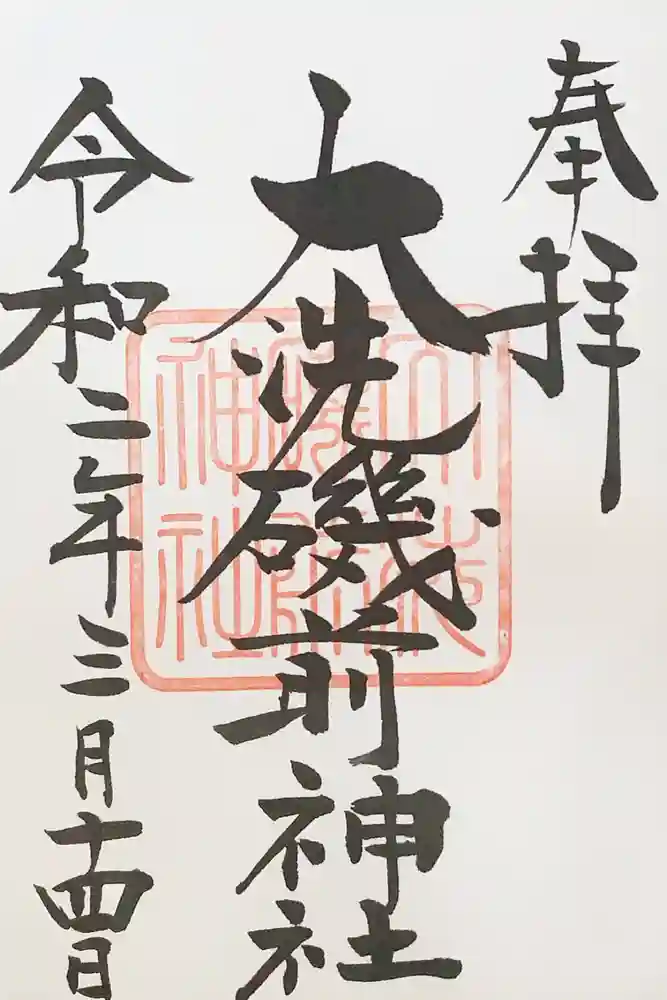 奉拝
大洗磯前神社
令和二年三月十四日
大洗
磯前
神社